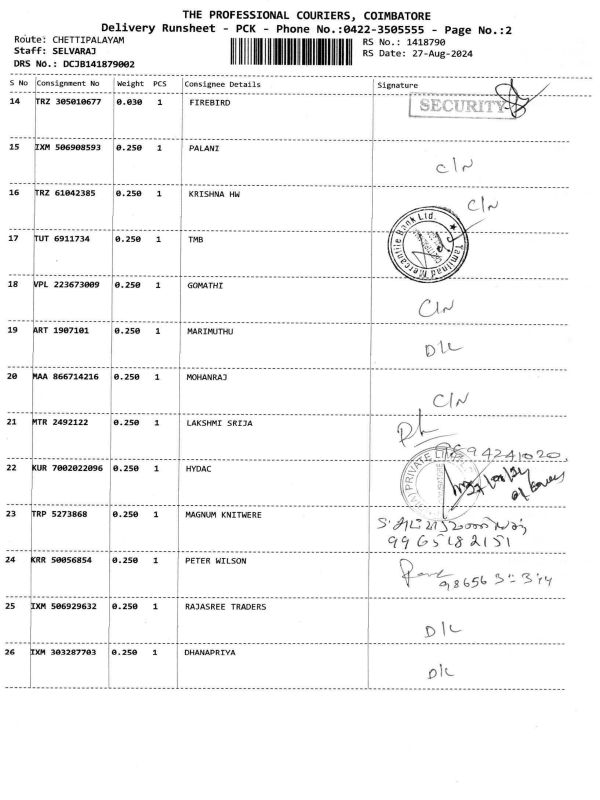 THE PROFESSIONAL COURIERS, COIMBATORE
Delivery Runsheet - PCK - Phone No.:0422-3505555 - Page No.:2
Route: CHETTIPALAYAM RS No.: 1418790
Staff: SELVARAJ RS Date: 27-Aug-2024
DRS No.: DCJB141879002
S No Consignment No Weight PCS Consignee Details Signature
14 TRZ 305010677 0.030 1 FIREBIRD SECURITY
15 IXM 506908593 0.250 1 PALANI C/N
16 TRZ 61042385 0.250 1 KRISHNA HW C/N
17 TUT 6911734 0.250 1 TMB Tamilnad Mercantile Bank Ltd.
18 VPL 223673009 0.250 1 GOMATHI C/N
19 ART 1907101 0.250 1 MARIMUTHU D/L
20 MAA 866714216 0.250 1 MOHANRAJ C/N
21 MTR 2492122 0.250 1 LAKSHMI SRIJA
22 KUR 7002022096 0.250 1 HYDAC PRIVATE
23 TRP 5273868 0.250 1 MAGNUM KNITWERE
9965182151
24 KRR 50056854 0.250 1 PETER WILSON
25 IXM 506929632 0.250 1 RAJASREE TRADERS D/L
26 IXM 303287703 0.250 1 DHANAPRIYA D/L